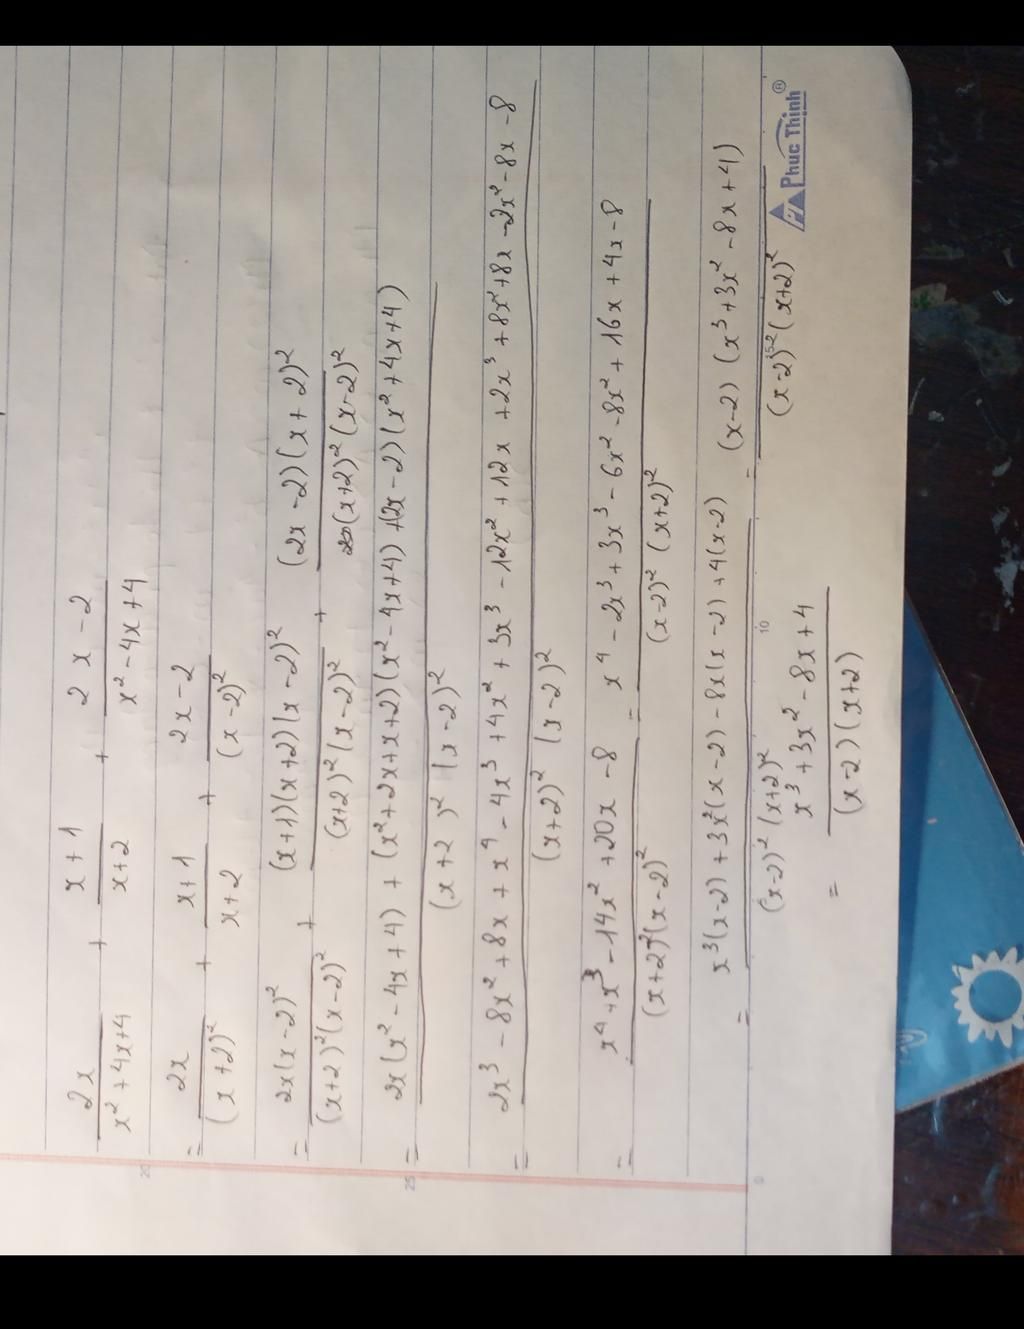 2x / (x² + 4x + 4) + (x + 1) / (x + 2) + (2x - 2) / (x² - 4x + 4)
= 2x / (x + 2)² + (x + 1) / (x + 2) + (2x - 2) / (x - 2)²
= 2x(x - 2)² / (x + 2)²(x - 2)² + (x + 1)(x + 2)(x - 2)² / (x + 2)²(x - 2)² + (2x - 2)(x + 2)² / (x + 2)²(x - 2)²
= 2x(x² - 4x + 4) + (x² + 2x + x + 2)(x² - 4x + 4) + (2x - 2)(x² + 4x + 4) / (x + 2)² (x - 2)²
= 2x³ - 8x² + 8x + x⁴ - 4x³ + 4x² + 3x³ - 12x² + 12x + 2x³ + 8x² + 8x - 2x² - 8x - 8 / (x + 2)² (x - 2)²
= x⁴ + x³ - 14x² + 20x - 8 / (x + 2)²(x - 2)² = x⁴ - 2x³ + 3x³ - 6x² - 8x² + 16x + 4x - 8 / (x - 2)² (x + 2)²
= x³(x - 2) + 3x²(x - 2) - 8x(x - 2) + 4(x - 2) / (x - 2)² (x + 2)² = (x - 2) (x³ + 3x² - 8x + 4) / (x - 2)² (x + 2)²
= x³ + 3x² - 8x + 4 / (x - 2)(x + 2)
20
25
0
10
15
Phuc Thinh®